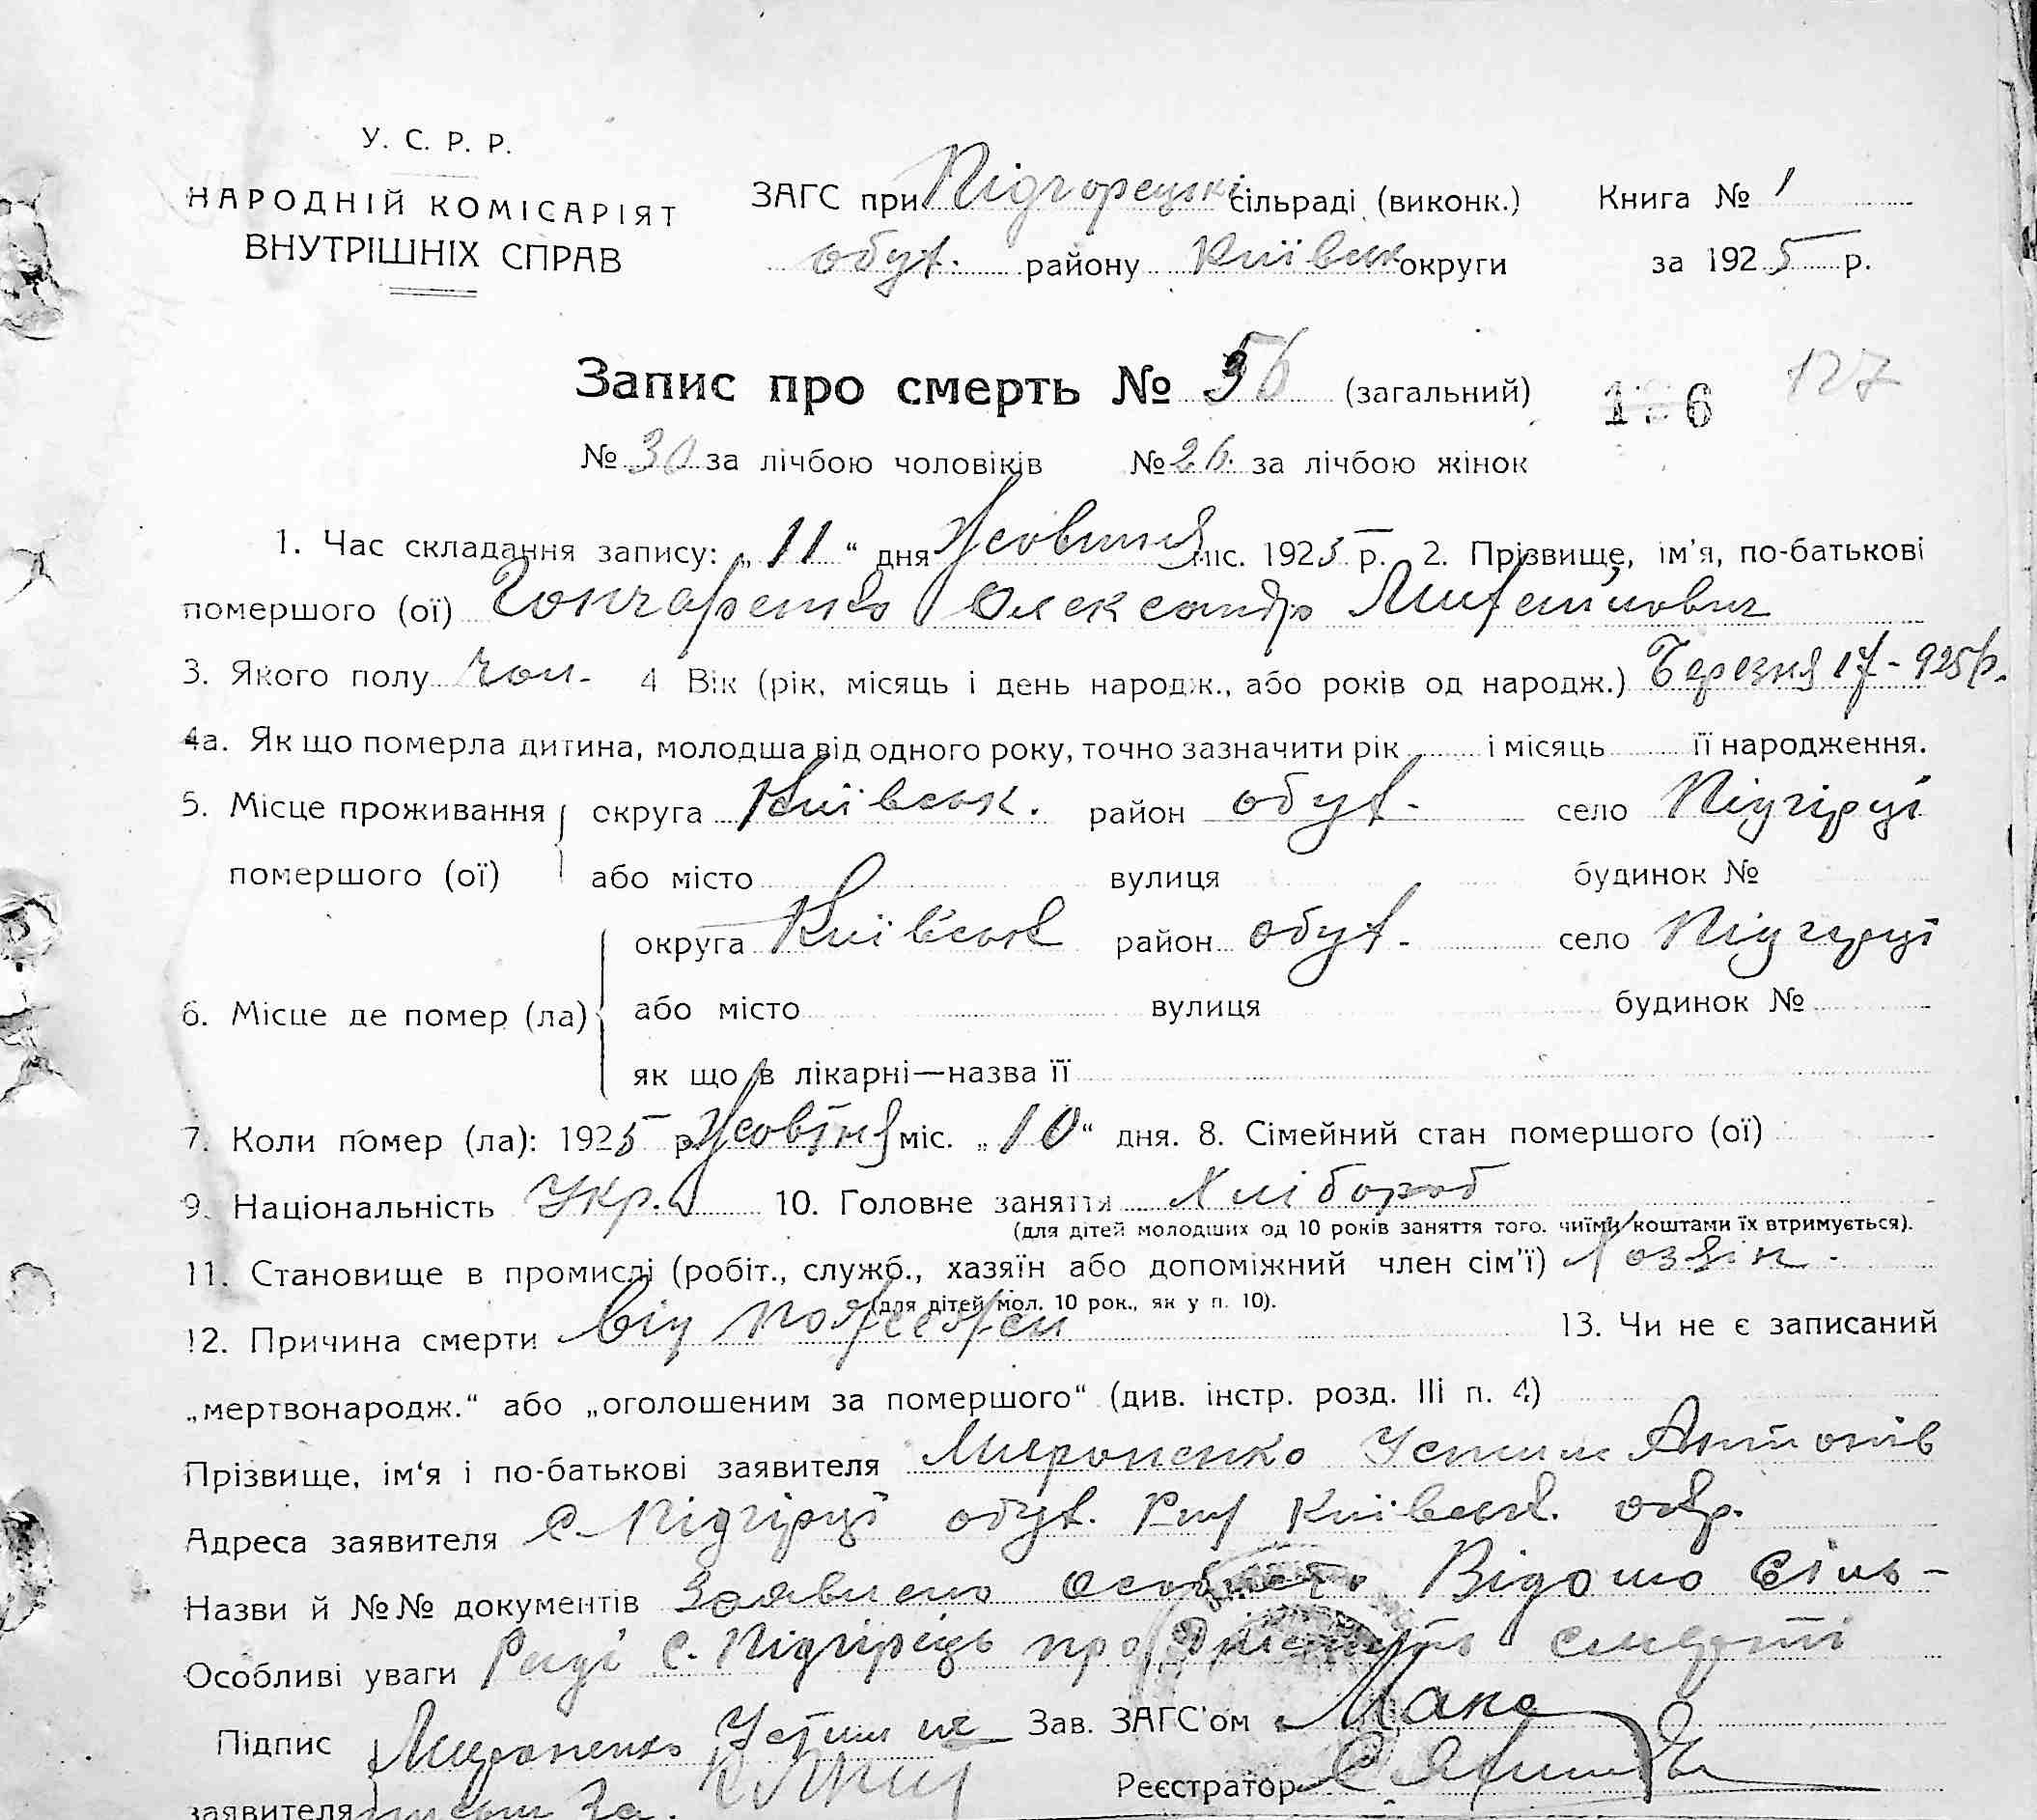 У. С. Р. Р.
НАРОДНІЙ КОМІСАРІЯТ
ВНУТРІШНІХ СПРАВ
ЗАГС при Підгорецькі сільраді (виконк.)
обух. району Київськ округи
Книга № 1
за 1925 р.
Запис про смерть № 56 (загальний)
126 127
№ 30 за лічбою чоловіків № 26. за лічбою жінок
1. Час складання запису: „11“ дня Жовтня міс. 1925 р. 2. Прізвище, ім'я, по-батькові
помершого (ої) Гончаренко Олександр
3. Якого полу чол. 4 Вік (рік, місяць і день народж., або років од народж.) Березня 17 - 925 р.
4а. Як що померла дитина, молодша від одного року, точно зазначити рік і місяць її народження.
5. Місце проживання округа Київськ. район обух. село Підгірці
помершого (ої) або місто вулиця будинок №
округа Київськ район обух. село Підгірці
6. Місце де помер (ла) або місто вулиця будинок №
як що в лікарні—назва її
7. Коли помер (ла): 1925 р. Жовтня міс. „10“ дня. 8. Сімейний стан помершого (ої)
9. Національність Укр. 10. Головне заняття Хлібороб
(для дітей молодших од 10 років заняття того. чиїми коштами їх втримується).
11. Становище в промислі (робіт., служб., хазяїн або допоміжний член сім'ї) Хозяїн.
(для дітей мол. 10 рок., як у п. 10).
12. Причина смерти від 13. Чи не є записаний
„мертвонародж.“ або „оголошеним за помершого“ (див. інстр. розд. III п. 4)
Прізвище, ім'я і по-батькові заявителя Мироненко Устим Антонів
Адреса заявителя с. Підгірці обух. Київськ. окр.
Назви й №№ документів Заявлено особисто Відомо Сіль-
Особливі уваги Раді с. Підгірець про дійсність смерти
Підпис Мироненко Устим Зав. ЗАГС'ом
заявителя Реєстратор